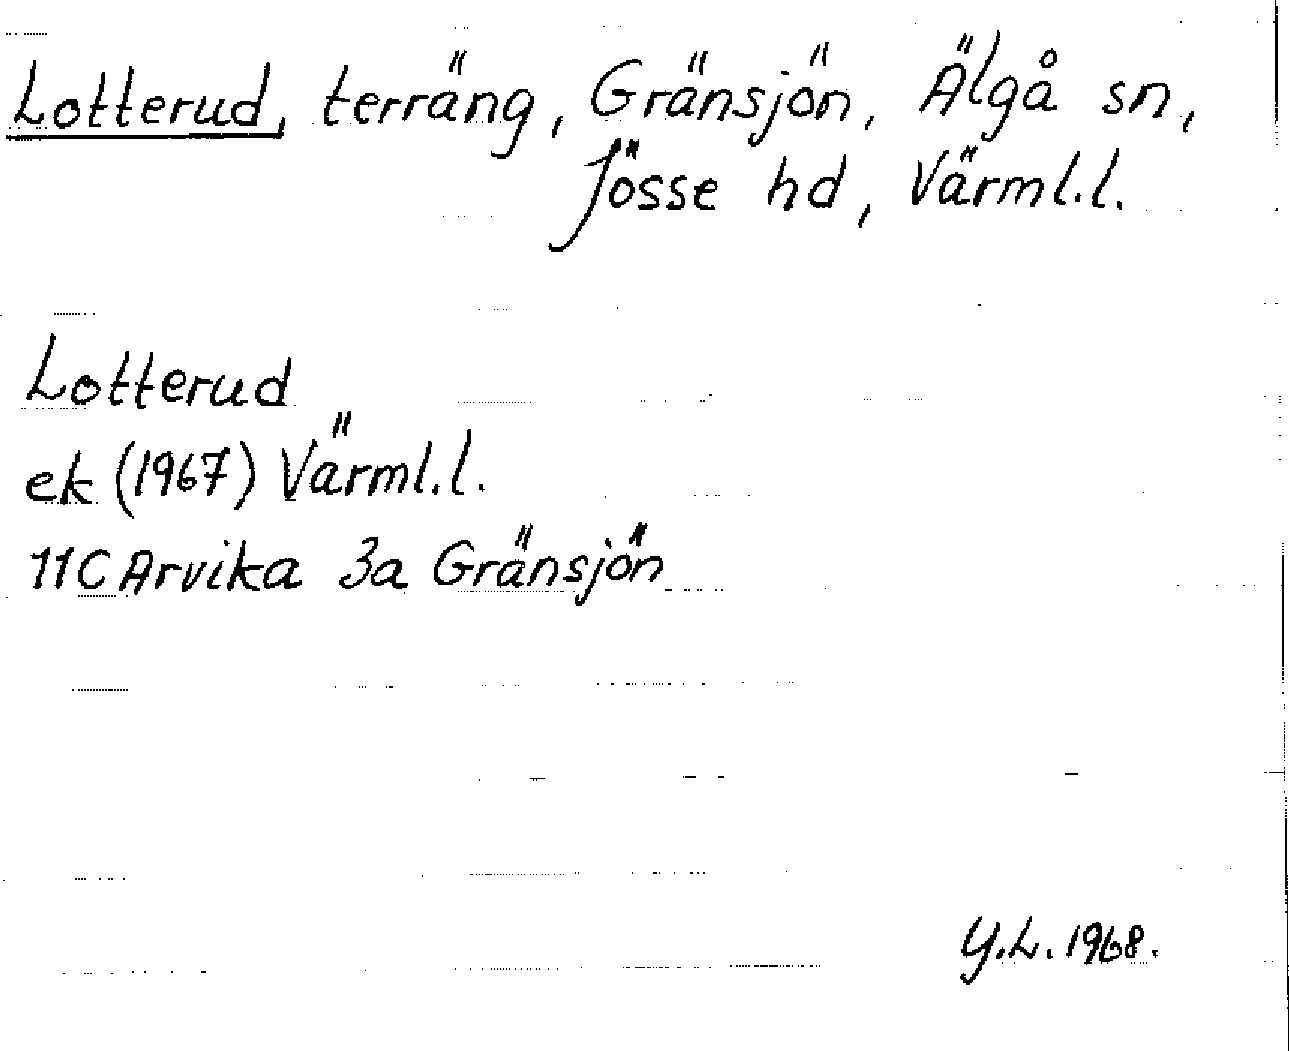 Lotterud, terräng, Gränsjön, Älgå sn,
Jösse hd, Värml.l.
Lotterud
ek (1967) Värml.l.
11C Arvika 3a Gränsjön
Y.L. 1968.